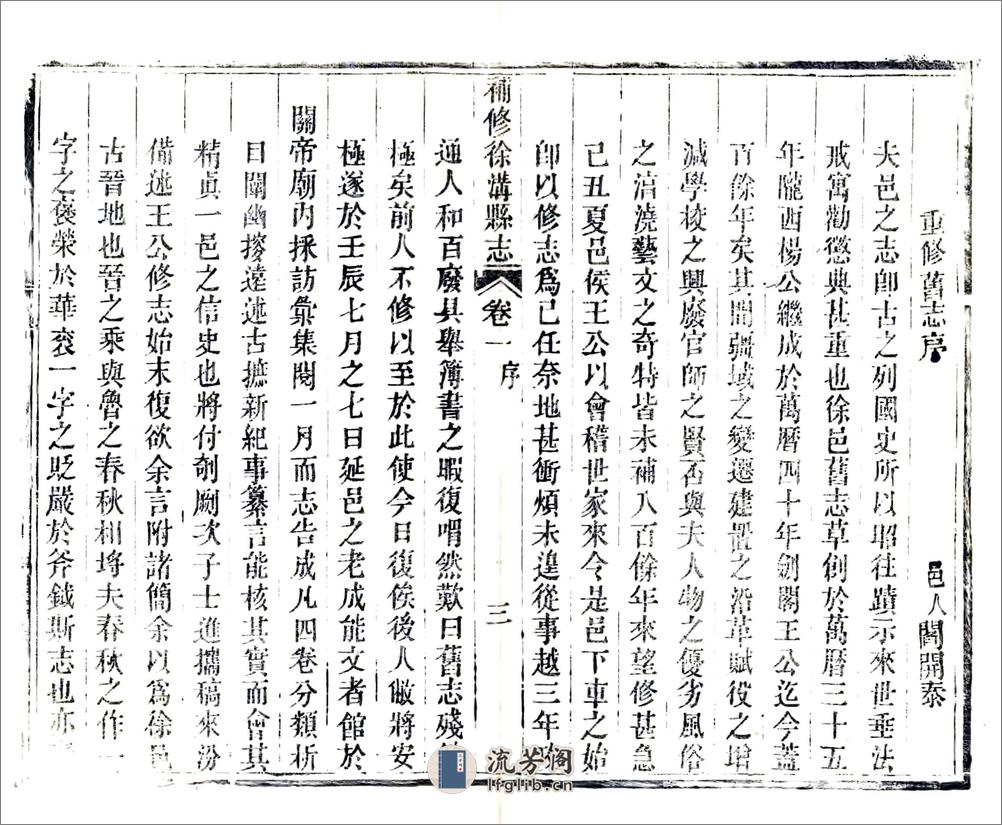 重修舊志序
邑人閻開泰
夫邑之志卽古之列國史所以昭往蹟示來世垂法
戒寓勸懲典甚重也徐邑舊志草創於萬曆三十五
年隴西楊公繼成於萬曆四十年劍閣王公迄今蓋
百餘年矣其間疆域之變遷建置之沿革賦役之增
減學校之興廢官師之賢否與夫人物之優劣風俗
之淳澆藝文之奇特皆未補入百餘年來望修甚急
己丑夏邑侯王公以會稽世家來令是邑下車之始
卽以修志爲己任奈地甚衝煩未遑從事越三年
補修徐溝縣志 卷一 序 三
通人和百廢具舉簿書之暇復喟然歎曰舊志殘
極矣前人不修以至於此使今日復俟後人敝將安
極遂於壬辰七月之七日延邑之老成能文者館於
關帝廟內採訪彙集閱一月而志告成凡四卷分類析
目闡幽搜遠述古摭新紀事纂言能核其實而會其
精眞一邑之信史也將付剞劂次子士進攜稿來汾
備述王公修志始末復欲余言附諸簡余以爲徐邑
古晉地也晉之乘與魯之春秋相埒夫春秋之作一
字之褒榮於華袞一字之貶嚴於斧鉞斯志也亦
流芳閣
lfglib.cn